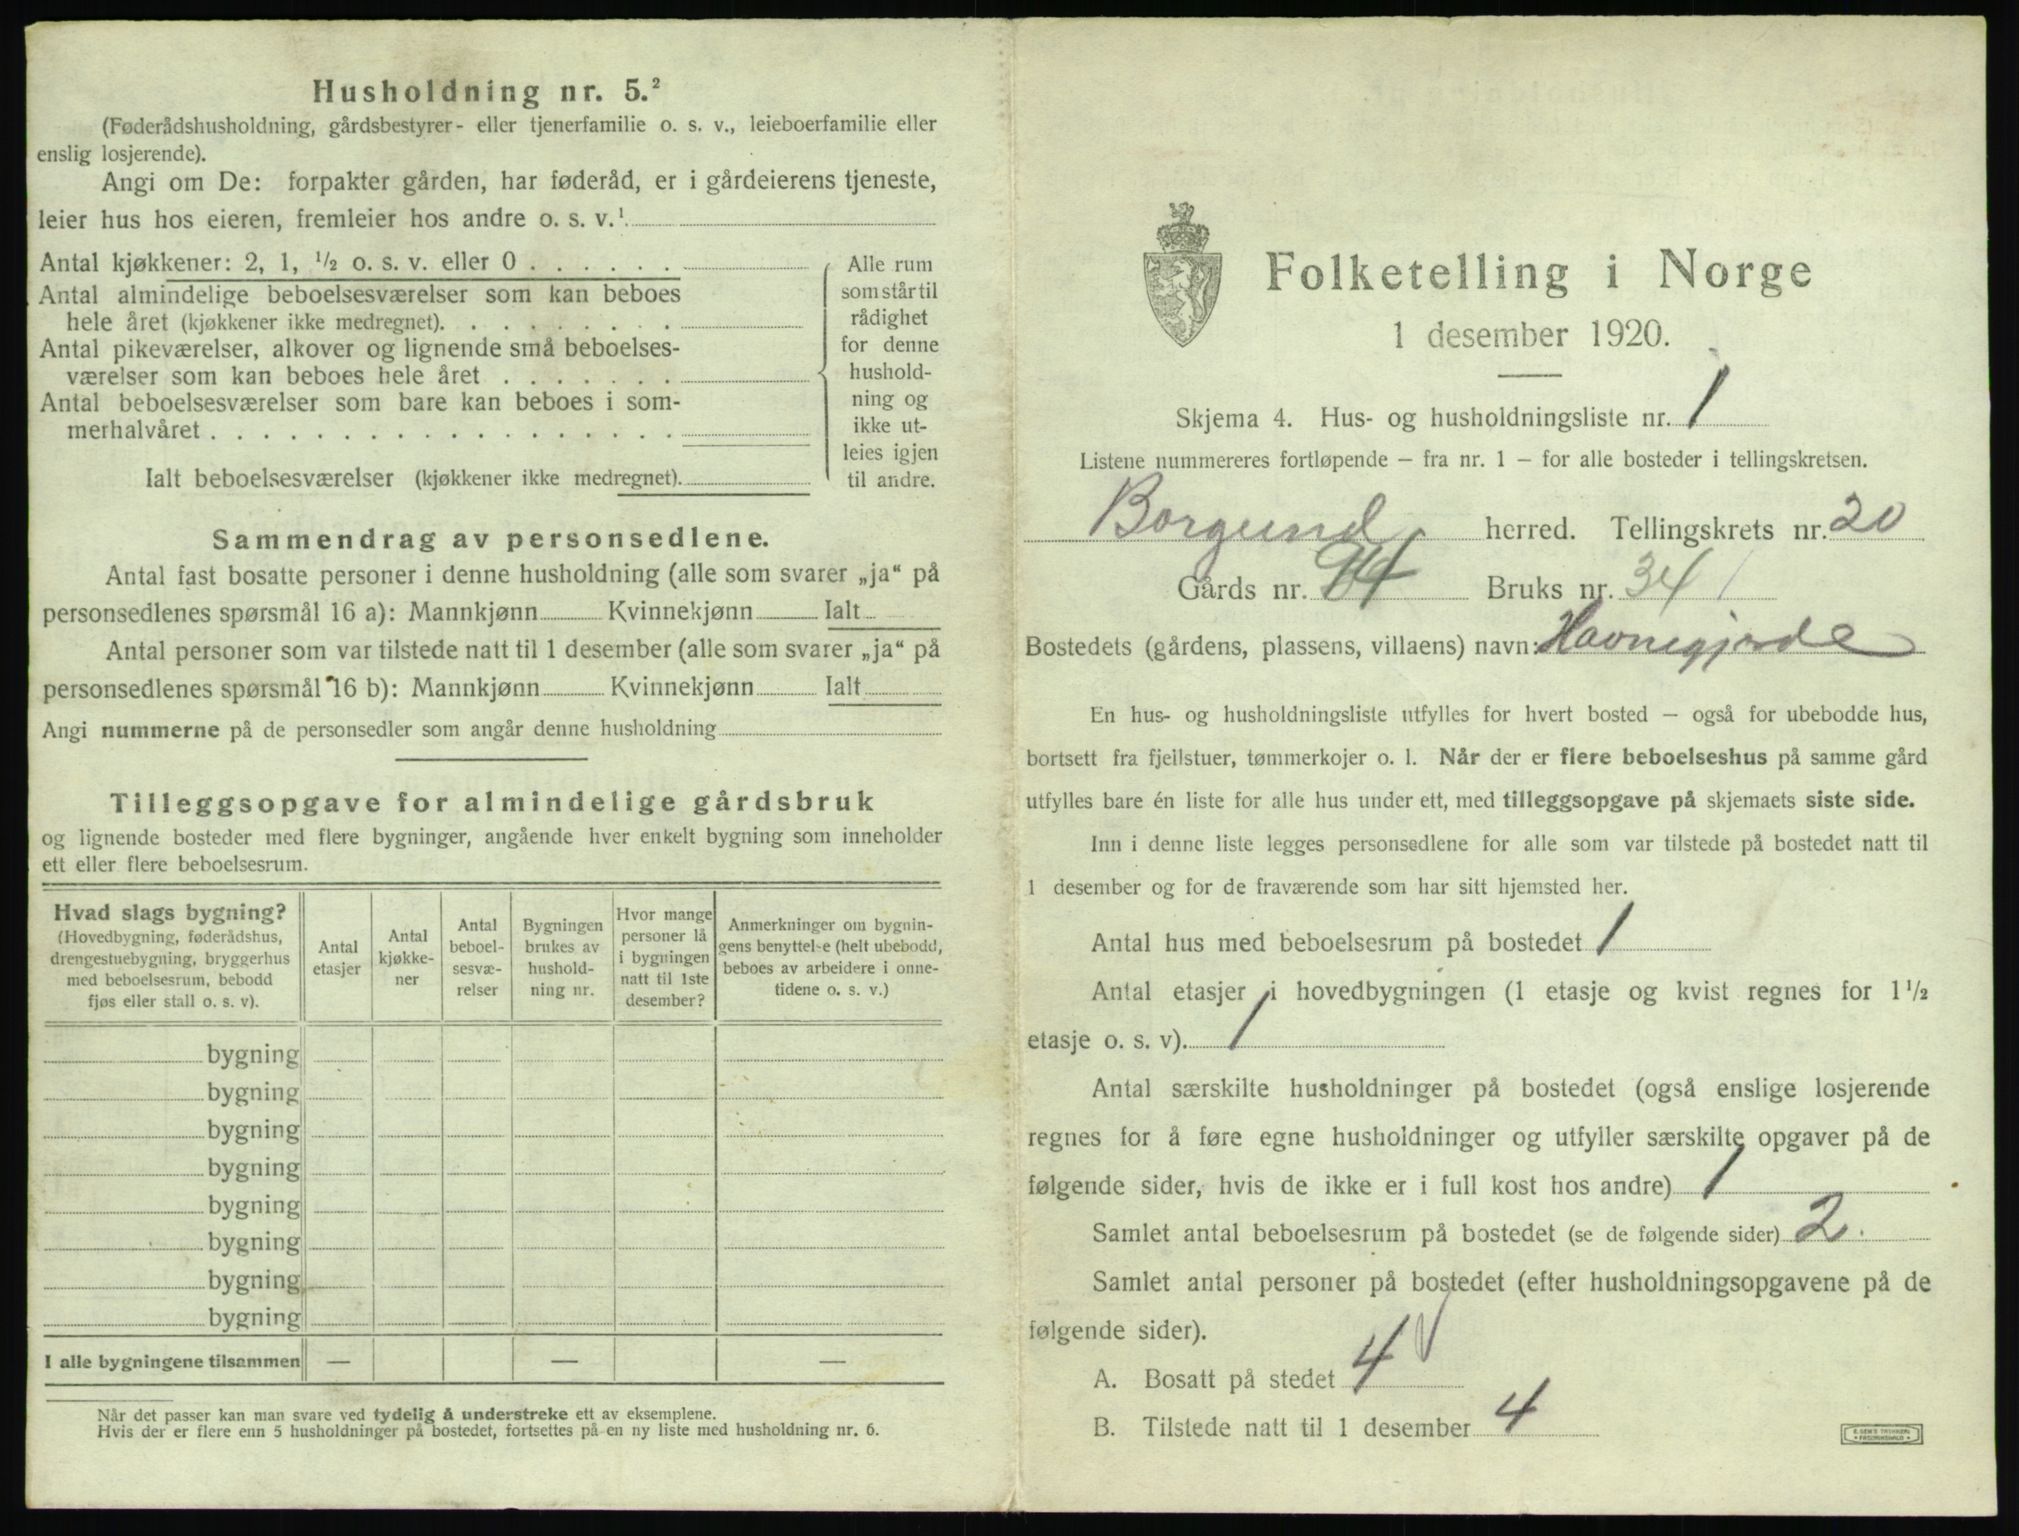 Husholdning nr. 5.²
(Føderådshusholdning, gårdsbestyrer- eller tjenerfamilie o. s. v., leieboerfamilie eller
enslig losjerende).
Angi om De: forpakter gården, har føderåd, er i gårdeierens tjeneste,
leier hus hos eieren, fremleier hos andre o. s. v.¹
Antal kjøkkener: 2, 1, ½ o. s. v. eller 0 . . . . . .
Antal almindelige beboelsesværelser som kan beboes
hele året (kjøkkener ikke medregnet). . . . . . . . .
Antal pikeværelser, alkover og lignende små beboelses-
værelser som kan beboes hele året . . . . . . .
Antal beboelsesværelser som bare kan beboes i som-
merhalvåret . . . . . . . . . . . . . . . . . .
Ialt beboelsesværelser (kjøkkener ikke medregnet).
Alle rum
som står til
rådighet
for denne
hushold-
ning og
ikke ut-
leies igjen
til andre.
Sammendrag av personsedlene.
Antal fast bosatte personer i denne husholdning (alle som svarer „ja“ på
personsedlenes spørsmål 16 a): Mannkjønn Kvinnekjønn Ialt
Antal personer som var tilstede natt til 1 desember (alle som svarer „ja“ på
personsedlenes spørsmål 16 b): Mannkjønn Kvinnekjønn Ialt
Angi nummerne på de personsedler som angår denne husholdning
Tilleggsopgave for almindelige gårdsbruk
og lignende bosteder med flere bygninger, angående hver enkelt bygning som inneholder
ett eller flere beboelsesrum.
Hvad slags bygning?
(Hovedbygning, føderådshus,
drengestuebygning, bryggerhus
med beboelsesrum, bebodd
fjøs eller stall o. s. v).
Antal
etasjer
Antal
kjøkke-
ner
Antal
beboel-
sesvæ-
relser
Bygningen
brukes av
hushold-
ning nr.
Hvor mange
personer lå
i bygningen
natt til 1ste
desember?
Anmerkninger om bygnin-
gens benyttelse (helt ubebodd,
beboes av arbeidere i onne-
tidene o. s. v.)
bygning
bygning
bygning
bygning
bygning
bygning
bygning
bygning
I alle bygningene tilsammen — — —
Når det passer kan man svare ved tydelig å understreke ett av eksemplene.
Hvis der er flere enn 5 husholdninger på bostedet, fortsettes på en ny liste med husholdning nr. 6.
Folketelling i Norge
1 desember 1920.
Skjema 4. Hus- og husholdningsliste nr. 1
Listene nummereres fortløpende – fra nr. 1 – for alle bosteder i tellingskretsen.
Borgund herred. Tellingskrets nr. 20
Gårds nr. Bruks nr. 34
Bostedets (gårdens, plassens, villaens) navn: Havnegjerde
En hus- og husholdningsliste utfylles for hvert bosted – også for ubebodde hus,
bortsett fra fjellstuer, tømmerkojer o. l. Når der er flere beboelseshus på samme gård
utfylles bare én liste for alle hus under ett, med tilleggsopgave på skjemaets siste side.
Inn i denne liste legges personsedlene for alle som var tilstede på bostedet natt til
1 desember og for de fraværende som har sitt hjemsted her.
Antal hus med beboelsesrum på bostedet 1
Antal etasjer i hovedbygningen (1 etasje og kvist regnes for 1½
etasje o. s. v). 1
Antal særskilte husholdninger på bostedet (også enslige losjerende
regnes for å føre egne husholdninger og utfyller særskilte opgaver på de
følgende sider, hvis de ikke er i full kost hos andre) 1
Samlet antal beboelsesrum på bostedet (se de følgende sider) 2.
Samlet antal personer på bostedet (efter husholdningsopgavene på de
følgende sider).
A. Bosatt på stedet 4
B. Tilstede natt til 1 desember 4